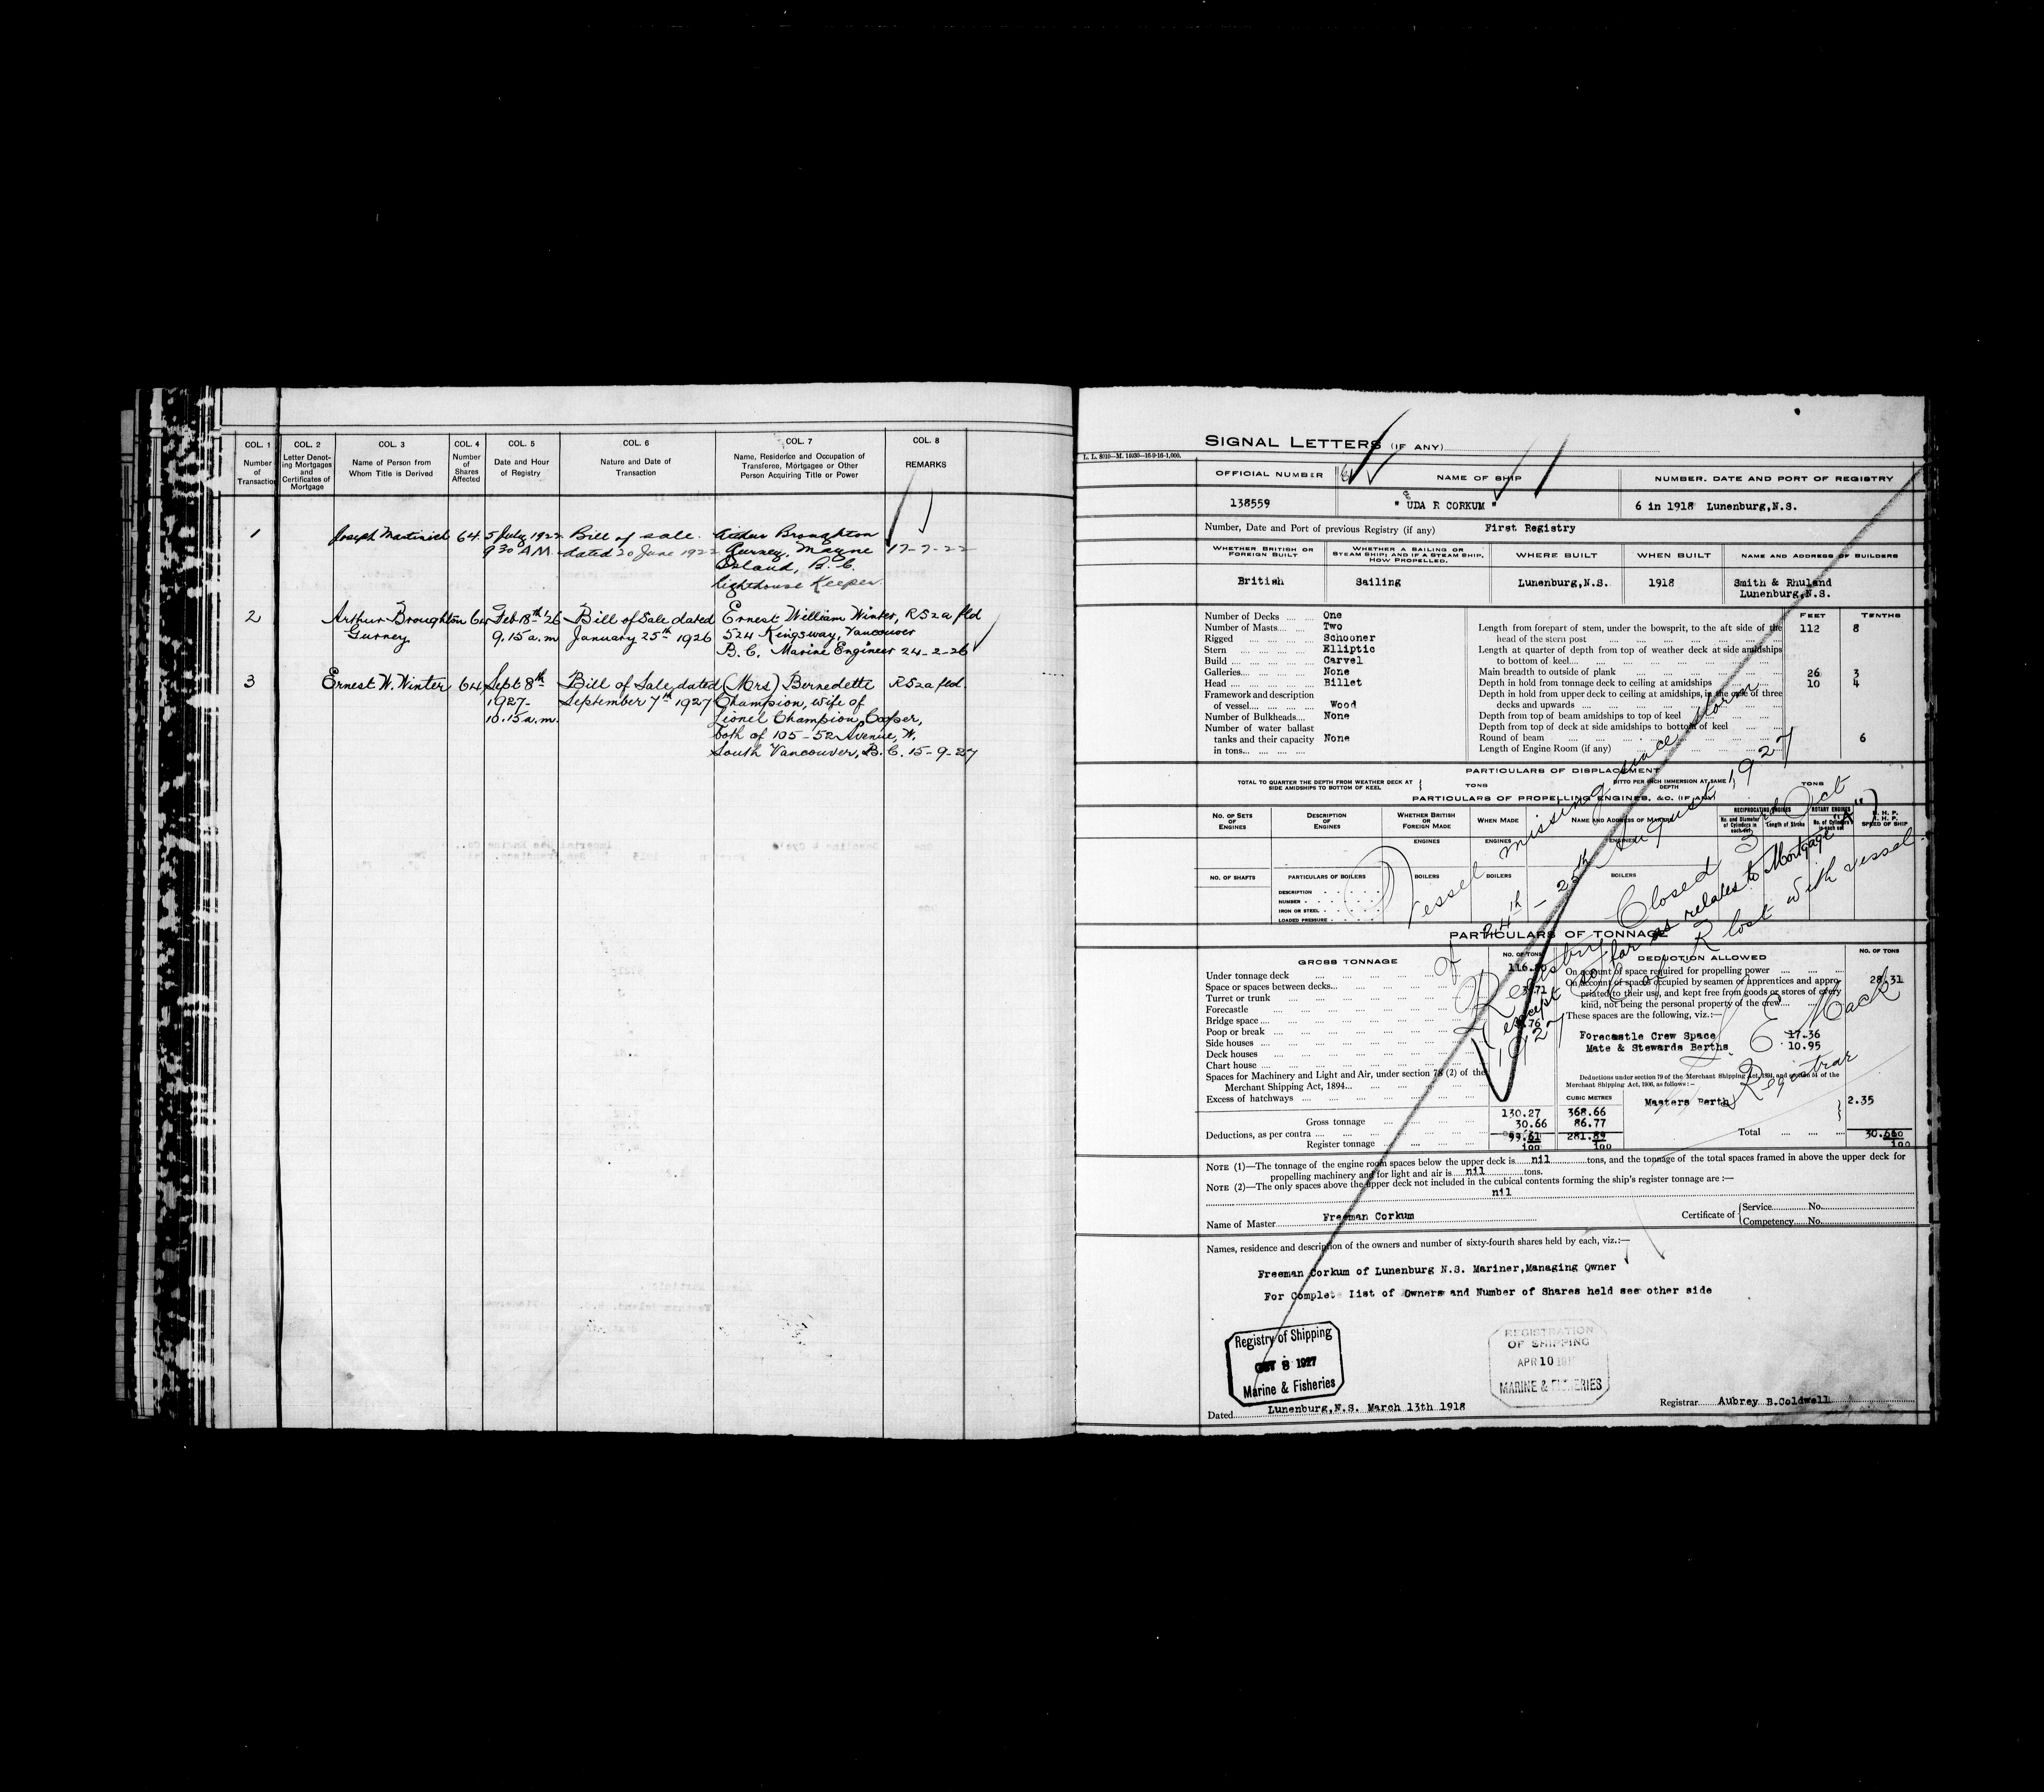 COL. 1 COL. 2 COL. 3 COL. 4 COL. 5 COL. 6 COL. 7 COL. 8
Number of Transaction
Letter Denoting Mortgages and Certificates of Mortgage
Name of Person from Whom Title is Derived
Number of Shares Affected
Date and Hour of Registry
Nature and Date of Transaction
Name, Residence and Occupation of Transferee, Mortgagee or Other Person Acquiring Title or Power
REMARKS
1 Joseph Martinich 64 5 July 1922 Bill of sale. Arthur Broughton
9 30 A.M. dated 20 June 1922 Gurney, Mayne 17-7-22
Island, B.C.
Lighthouse Keeper.
2 Arthur Broughton 64 Feb 18th '26 Bill of Sale dated Ernest William Winter, RS2a fld
Gurney 9.15 a.m January 25th 1926 524 Kingsway, Vancouver
B.C. Marine Engineer 24-2-26
3 Ernest W. Winter 64 Sept 8th Bill of Sale dated (Mrs) Bernedette RS2a fld.
1927- September 7th 1927 Champion, wife of
10.15 a.m. Lionel Champion Cooper,
both of 105-52 Avenue, W.
South Vancouver, B.C. 15-9-27
SIGNAL LETTERS (IF ANY)
L. L. 8010—M.
OFFICIAL NUMBER NAME OF SHIP NUMBER, DATE AND PORT OF REGISTRY
138559 " UDA R CORKUM " 6 in 1918 Lunenburg,N.S.
Number, Date and Port of previous Registry (if any) First Registry
WHETHER BRITISH OR FOREIGN BUILT
WHETHER A SAILING OR STEAM SHIP; AND IF A STEAM SHIP, HOW PROPELLED.
WHERE BUILT WHEN BUILT NAME AND ADDRESS OF BUILDERS
British Sailing Lunenburg,N.S. 1918 Smith & Rhuland
Lunenburg,N.S.
FEET TENTHS
Number of Decks One
Number of Masts Two
Rigged Schooner
Stern Elliptic
Build Carvel
Galleries None
Head Billet
Framework and description of vessel Wood
Number of Bulkheads None
Number of water ballast tanks and their capacity in tons None
Length from forepart of stem, under the bowsprit, to the aft side of the head of the stern post 112 8
Length at quarter of depth from top of weather deck at side amidships to bottom of keel
Main breadth to outside of plank 26 3
Depth in hold from tonnage deck to ceiling at amidships 10 4
Depth in hold from upper deck to ceiling at amidships, in the case of three decks and upwards
Depth from top of beam amidships to top of keel
Depth from top of deck at side amidships to bottom of keel
Round of beam 6
Length of Engine Room (if any)
PARTICULARS OF DISPLACEMENT
TOTAL TO QUARTER THE DEPTH FROM WEATHER DECK AT SIDE AMIDSHIPS TO BOTTOM OF KEEL TONS DITTO PER INCH IMMERSION AT SAME DEPTH TONS
PARTICULARS OF PROPELLING ENGINES, &C. (IF ANY)
NO. OF SETS OF ENGINES
DESCRIPTION OF ENGINES
WHETHER BRITISH OR FOREIGN MADE
WHEN MADE
NAME AND ADDRESS OF MAKERS
RECIPROCATING ENGINES
No. and Diameter of Cylinders in each set
Length of Stroke
ROTARY ENGINES
No. of Cylinders in each set
SPEED OF SHIP
ENGINES ENGINES ENGINES
NO. OF SHAFTS PARTICULARS OF BOILERS BOILERS BOILERS BOILERS
DESCRIPTION
NUMBER
IRON OR STEEL
LOADED PRESSURE
Vessel missing since storm
of 24th - 25th August 1927
Registry Closed 3rd Oct
1927
(except so far as relates to Mortgage "A")
Cert. R lost with vessel.
S E Mack
Registrar
PARTICULARS OF TONNAGE
GROSS TONNAGE NO. OF TONS DEDUCTION ALLOWED NO. OF TONS
Under tonnage deck
Space or spaces between decks
Turret or trunk
Forecastle
Bridge space
Poop or break
Side houses
Deck houses
Chart house
Spaces for Machinery and Light and Air, under section 78 (2) of the Merchant Shipping Act, 1894
Excess of hatchways
Gross tonnage 130.27 368.66
Deductions, as per contra 30.66 86.77
Register tonnage 99.61 281.89
100 100
CUBIC METRES
On account of space required for propelling power
On account of spaces occupied by seamen or apprentices and appropriated to their use, and kept free from goods or stores of every kind, not being the personal property of the crew 28.31
These spaces are the following, viz.:—
Forecastle Crew Space 17.36
Mate & Stewards Berths. 10.95
Deductions under section 79 of the Merchant Shipping Act, 1894, and section 54 of the Merchant Shipping Act, 1906, as follows:—
Masters Berth 2.35
Total 30.66
100
NOTE (1)—The tonnage of the engine room spaces below the upper deck is nil tons, and the tonnage of the total spaces framed in above the upper deck for
propelling machinery and for light and air is nil tons.
NOTE (2)—The only spaces above the upper deck not included in the cubical contents forming the ship's register tonnage are :—
nil
Name of Master Freeman Corkum Certificate of Service No.
Competency No.
Names, residence and description of the owners and number of sixty-fourth shares held by each, viz.:—
Freeman Corkum of Lunenburg N.S. Mariner,Managing Owner
For Complete List of Owners and Number of Shares held see other side
Registry of Shipping
OCT 8 1927
Marine & Fisheries
REGISTRATION
OF SHIPPING
APR 10
MARINE & FISHERIES
Dated Lunenburg,N.S. March 13th 1918 Registrar Aubrey B.Coldwell